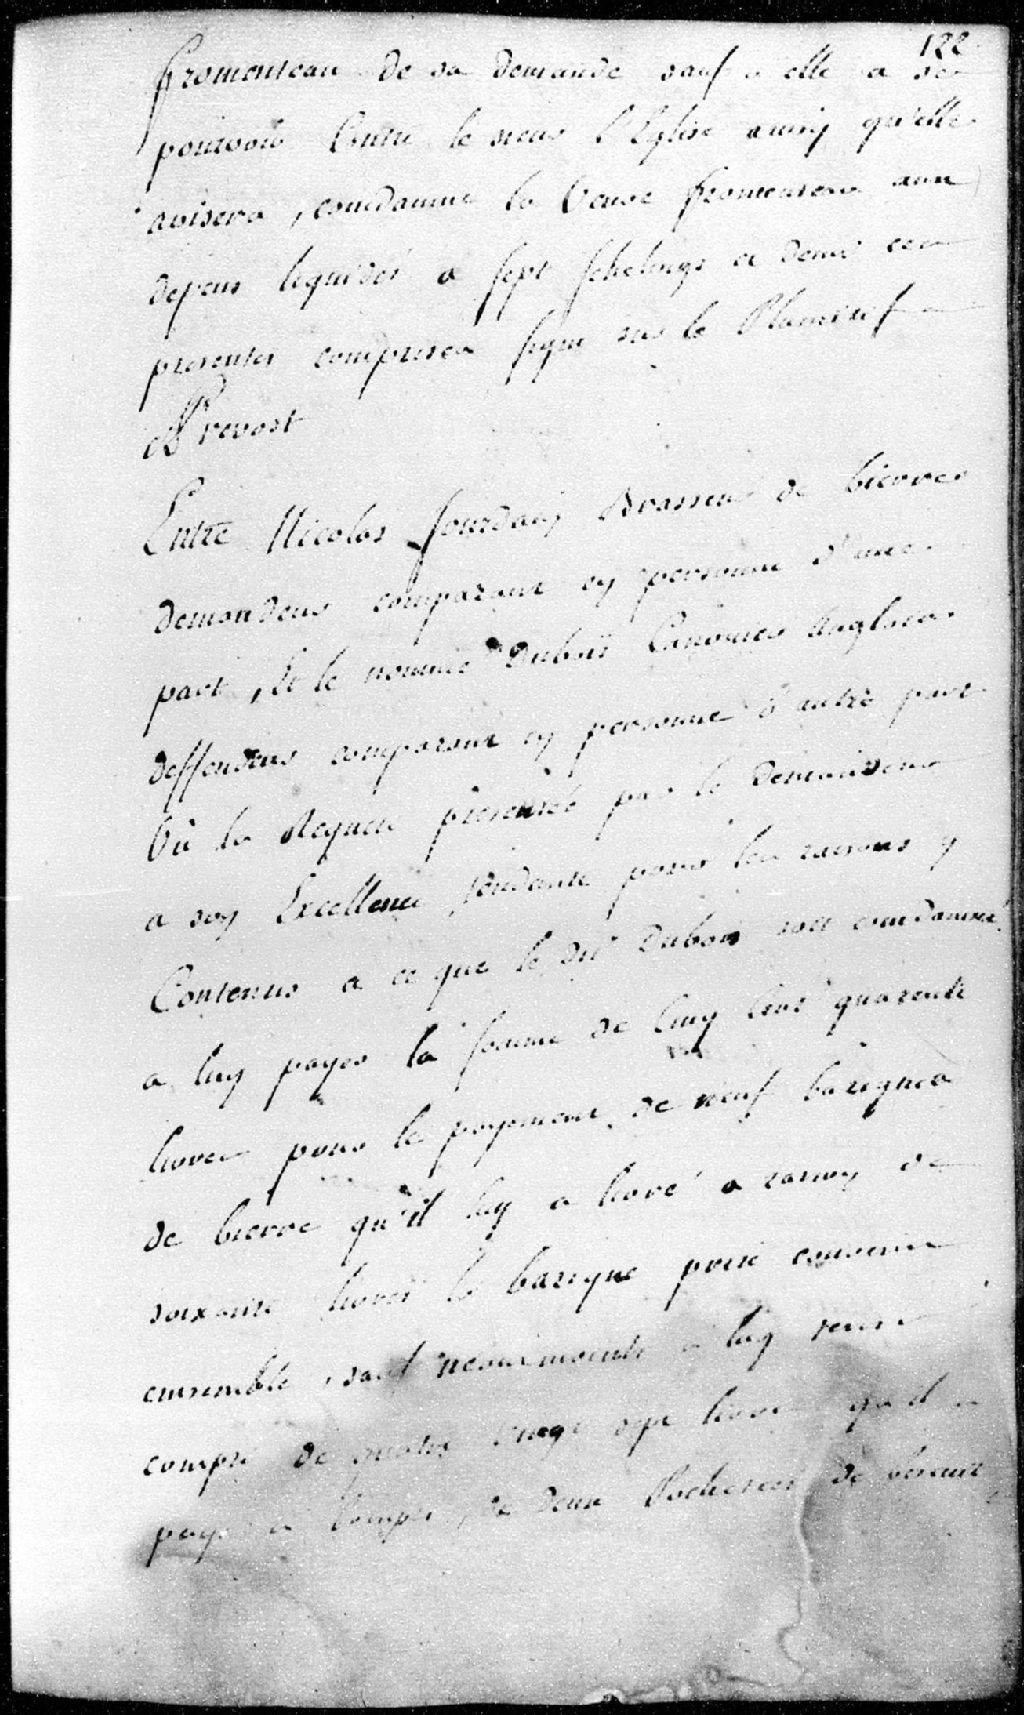 122
fromenteau de sa demande sauf a elle a se
pourvoir Contre le sieur l'Eglise ainsy qu'elle
avisera, condamne la Veuve fromenteau aux
depens liquidés a sept schelings et demi ces
presentes comprises signé sur le Plumitif
Prevost
Entre Nicolas Jourdain Brasseur de bierres
demandeur comparant en personne d'une
part, Et le nommé Dubois Canonier Anglois
deffendeur comparant en personne d'autre part
Vû la Requete presentée par le demandeur
a son Excellence tendante pour les raisons y
Contenus a ce que le dit Dubois soit condamné
a luy payer la somme de Cinq Cent quarente
livres pour le payement de neuf bariques
de bierre qu'il luy a livré a raison de
soixante livres la barique prix convenu
ensemble, sauf neanmoins a luy tenir
compte de quatre vingt sept livres qu'il a
payé a Compte, de deux